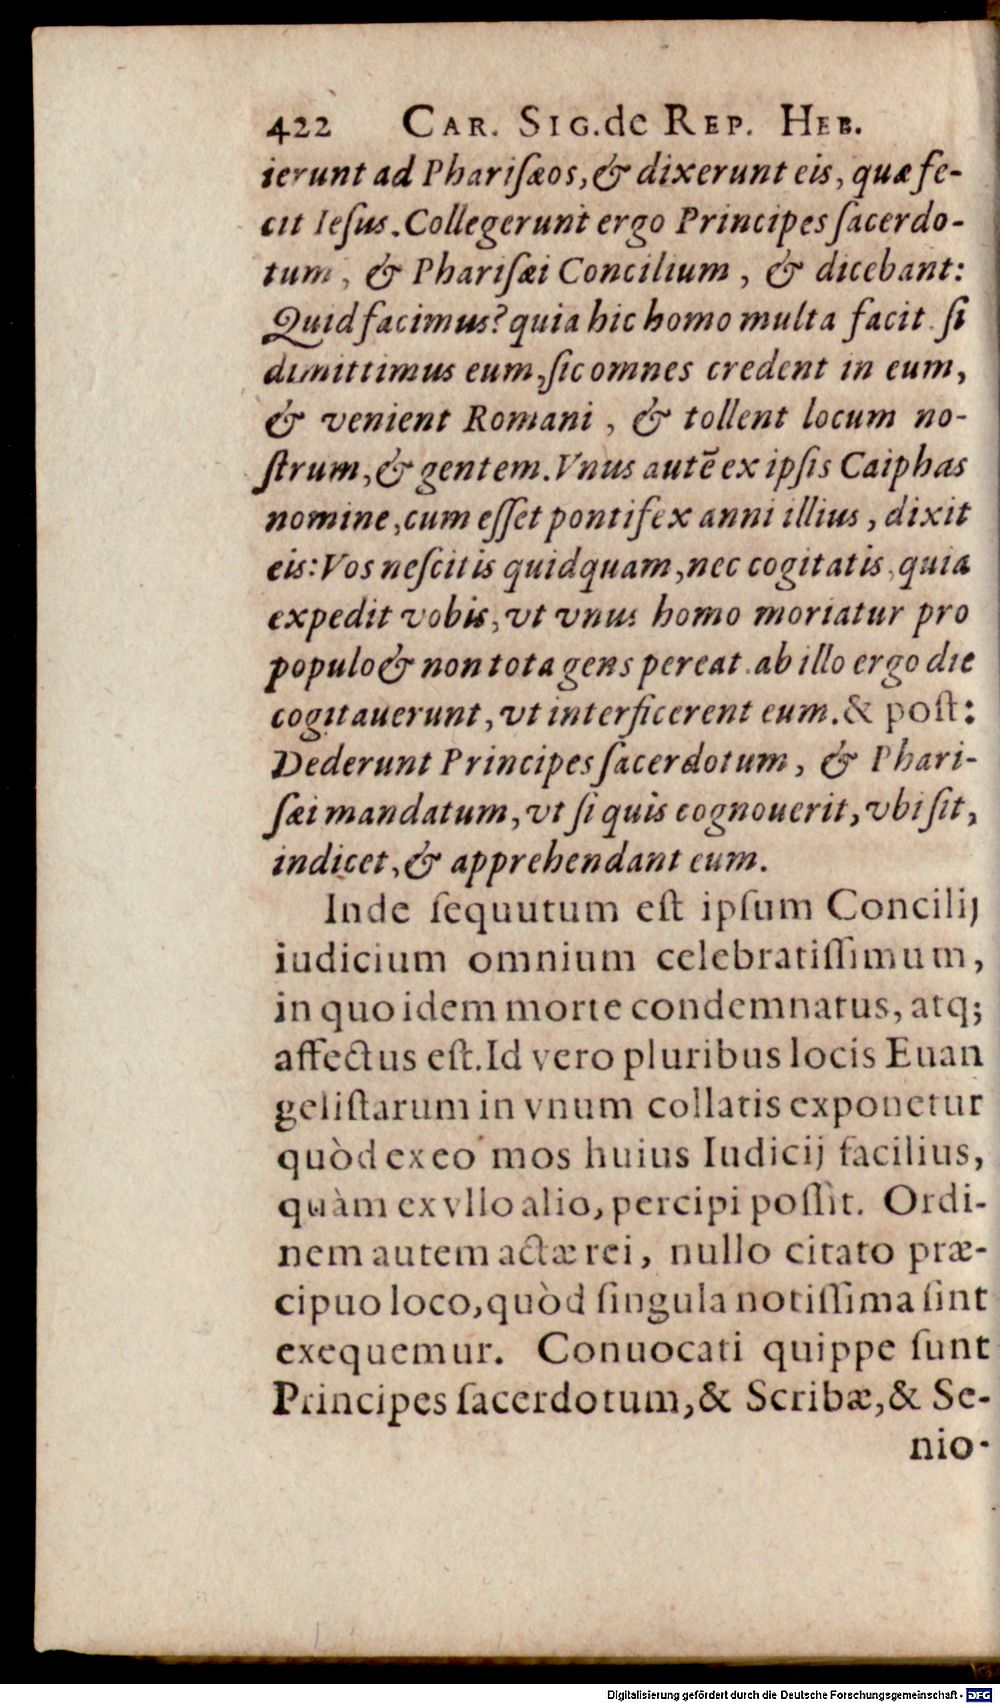 422 CAR. SIG. de REP. HEB.
ierunt ad Phariſæos, & dixerunt eis, quæ fe-
cit Ieſus. Collegerunt ergo Principes ſacerdo-
tum, & Phariſæi Concilium, & dicebant:
Quid facimus? quia hic homo multa facit. ſi
dimittimus eum, ſic omnes credent in eum,
& venient Romani, & tollent locum no-
ſtrum, & gentem. Vnus autē ex ipſis Caiphas
nomine, cum eſſet pontifex anni illius, dixit
eis: Vos neſcitis quidquam, nec cogitatis, quia
expedit vobis, vt vnus homo moriatur pro
populo & non tota gens pereat. ab illo ergo die
cogitauerunt, vt interficerent eum. & poſt:
Dederunt Principes ſacerdotum, & Phari-
ſæi mandatum, vt ſi quis cognouerit, vbi ſit,
indicet, & apprehendant eum.
Inde ſequutum eſt ipſum Concilij
iudicium omnium celebratiſſimum,
in quo idem morte condemnatus, atq;
affectus eſt. Id vero pluribus locis Euan
geliſtarum in vnum collatis exponetur
quòd ex eo mos huius Iudicij facilius,
quàm ex vllo alio, percipi poſſit. Ordi-
nem autem actæ rei, nullo citato præ-
cipuo loco, quòd ſingula notiſſima ſint
exequemur. Conuocati quippe ſunt
Principes ſacerdotum, & Scribæ, & Se-
nio-
Digitalisierung gefördert durch die Deutsche Forschungsgemeinschaft - DFG